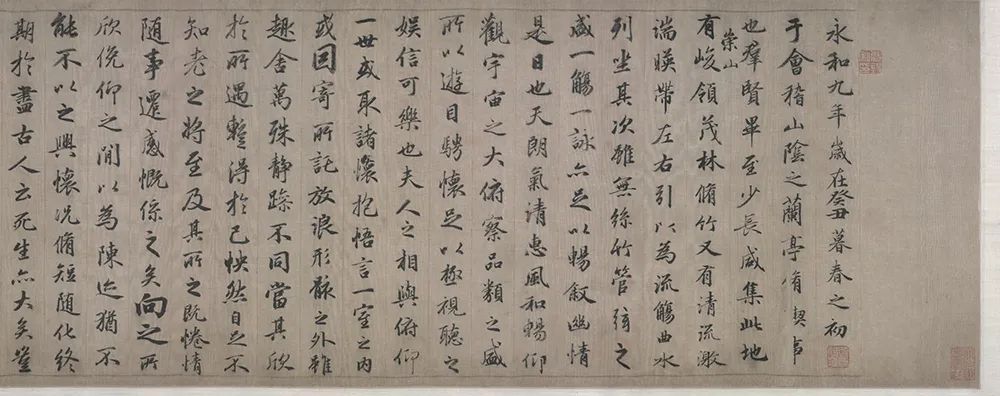 永和九年歲在癸丑暮春之初
于會稽山陰之蘭亭脩禊事
也羣賢畢至少長咸集此地
有崇山峻領茂林脩竹又有清流激
湍暎帶左右引以為流觴曲水
列坐其次雖無絲竹管弦之
盛一觴一詠亦足以暢敘幽情
是日也天朗氣清惠風和暢仰
觀宇宙之大俯察品類之盛
所以遊目騁懷足以極視聽之
娛信可樂也夫人之相與俯仰
一世或取諸懷抱悟言一室之內
或因寄所託放浪形骸之外雖
趣舍萬殊靜躁不同當其欣
於所遇暫得於己怏然自足不
知老之將至及其所之既惓情
隨事遷感慨係之矣向之所
欣俛仰之閒以為陳迹猶不
能不以之興懷況脩短隨化終
期於盡古人云死生亦大矣豈